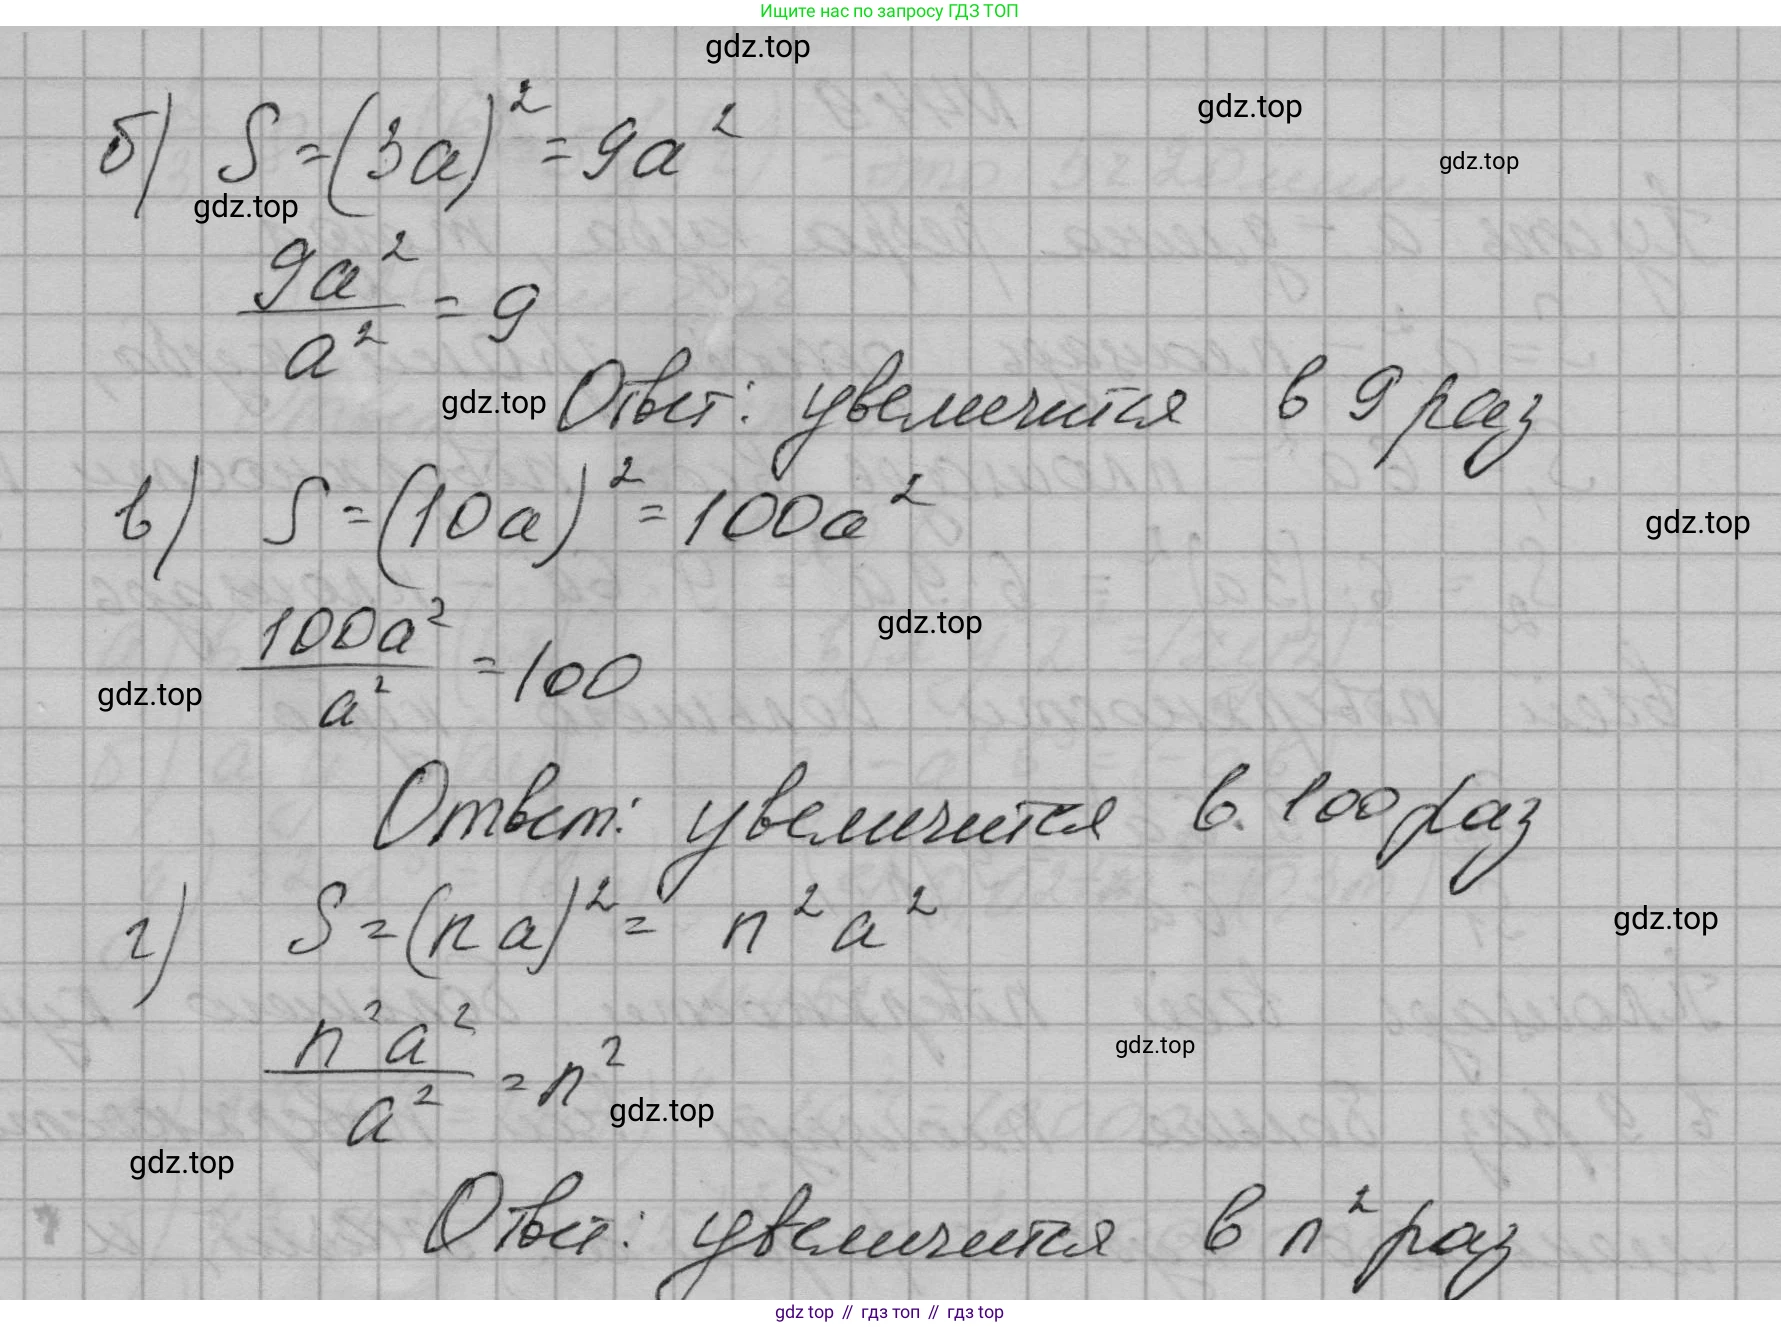 Ищите нас по запросу ГДЗ ТОП
gdz.top
gdz.top
б) S = (3a)² = 9a²
gdz.top
gdz.top
9a²/a² = 9
gdz.top
Ответ: увеличится в 9 раз
в) S = (10a)² = 100a²
gdz.top
100a²/a² = 100
gdz.top
gdz.top
Ответ: увеличится в 100 раз
г) S = (na)² = n²a²
gdz.top
n²a²/a² = n²
gdz.top
gdz.top
gdz.top
Ответ: увеличится в n² раз
gdz top // гдз топ // гдз top